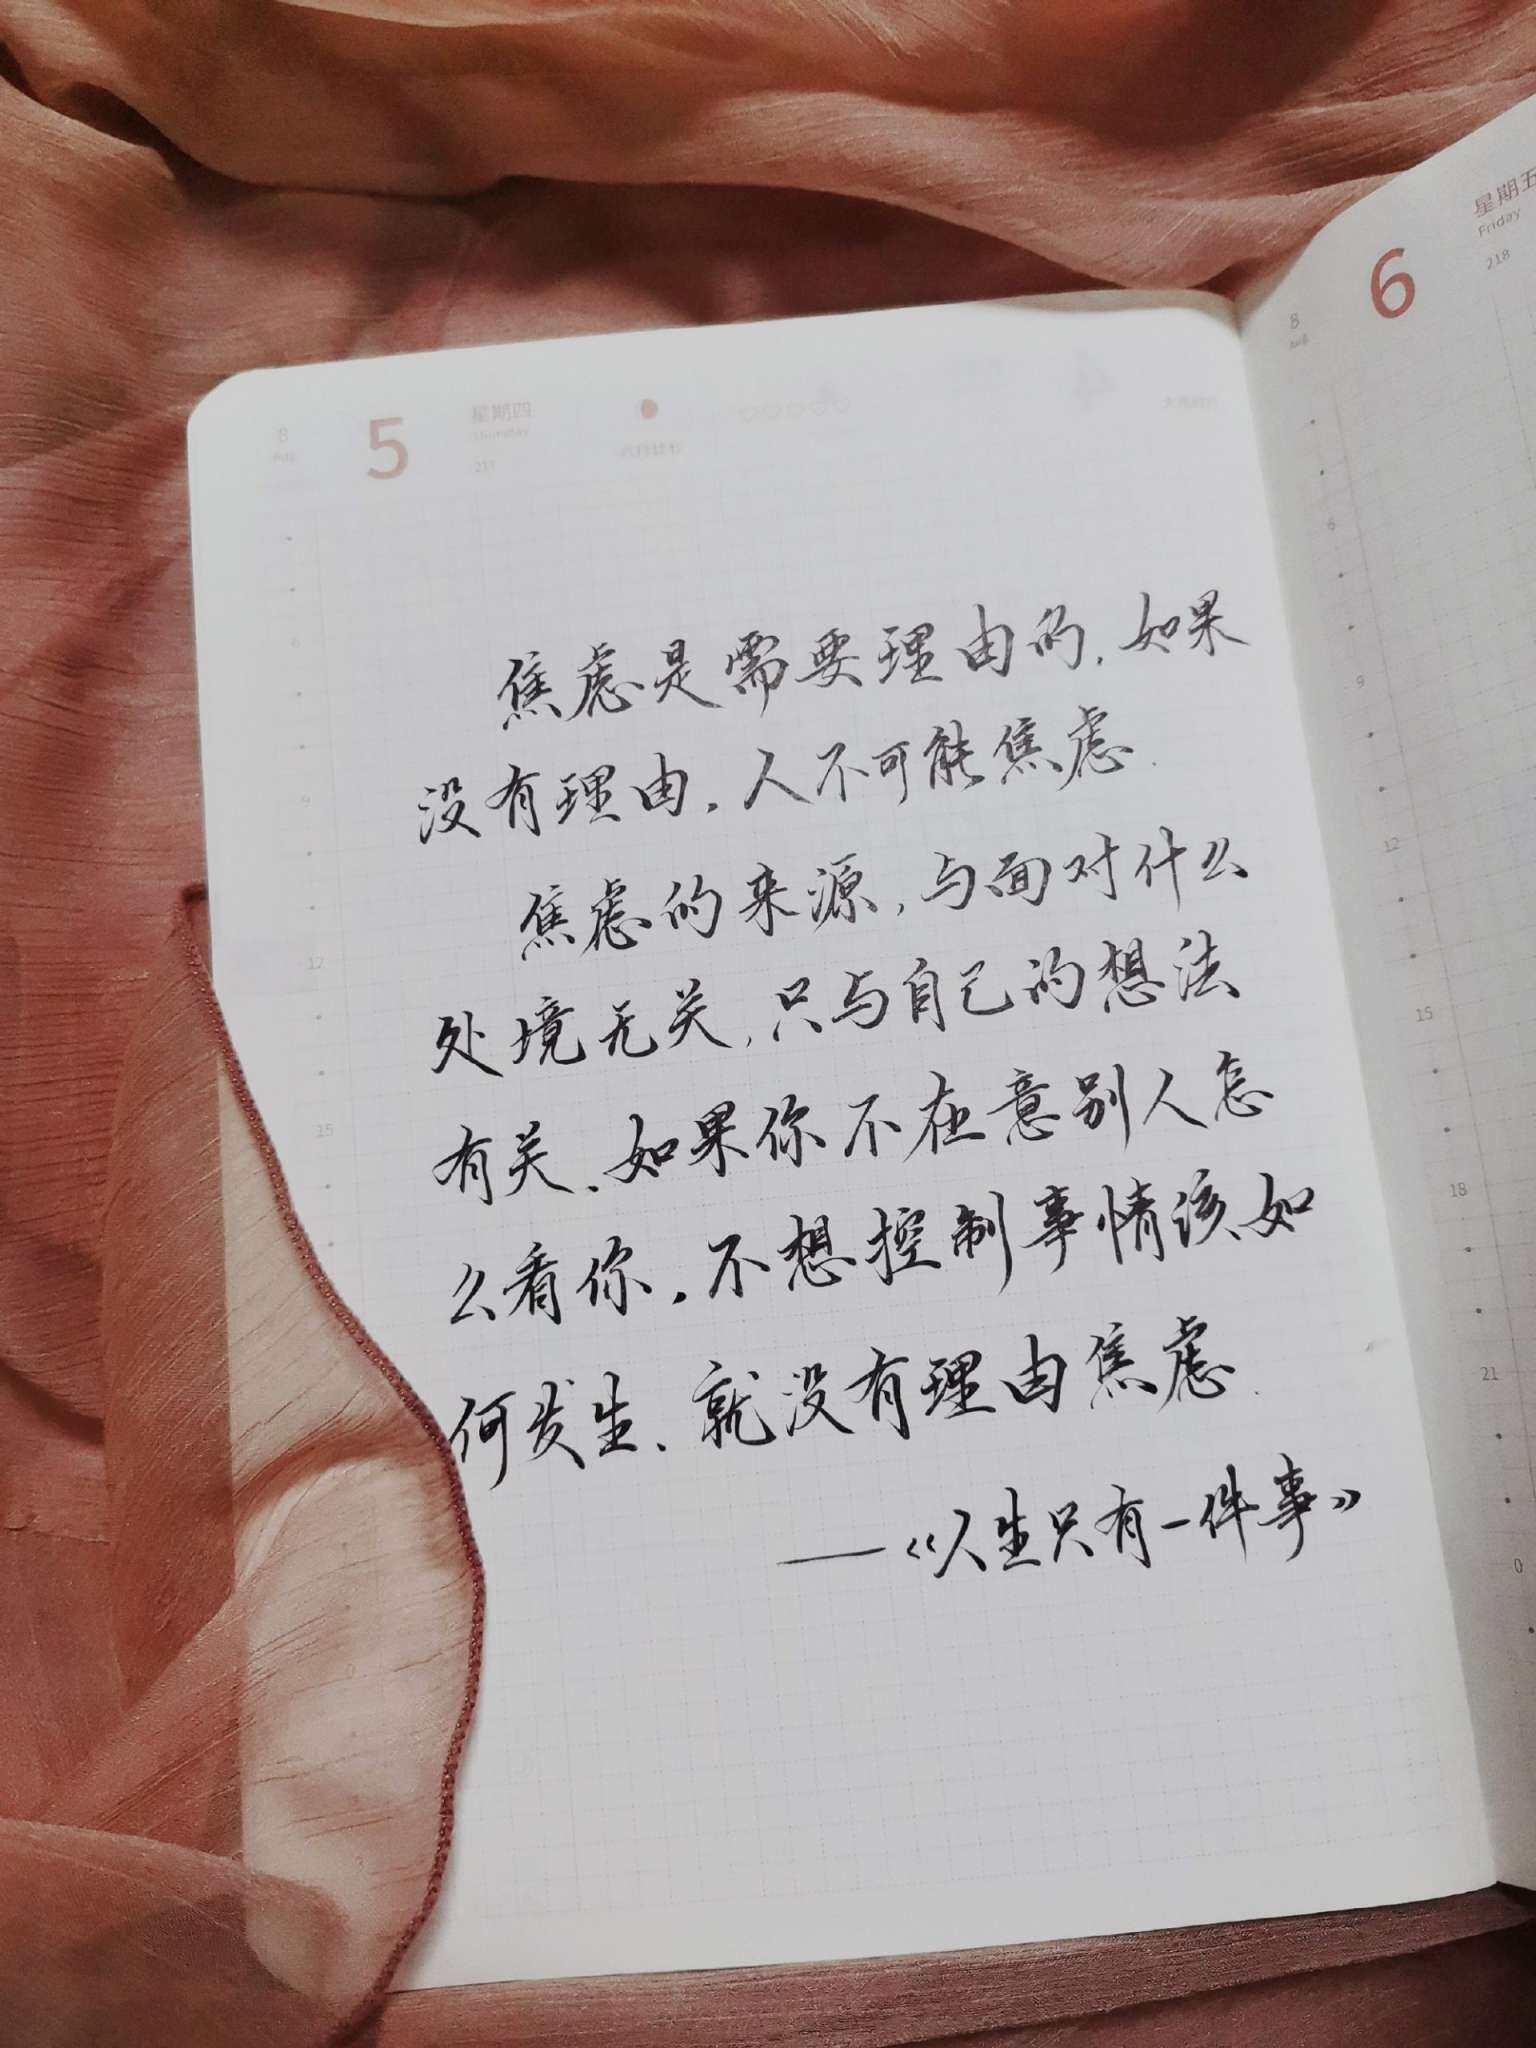 8
5
星期四
Thursday
217
焦虑是需要理由的,如果
没有理由,人不可能焦虑.
焦虑的来源,与面对什么
处境无关,只与自己的想法
有关、如果你不在意别人怎
么看你,不想控制事情该如
何发生、就没有理由焦虑.
——《人生只有一件事》
6
9
12
15
8
Aug
6
星期五
Friday
218
6
9
12
15
18
21
0